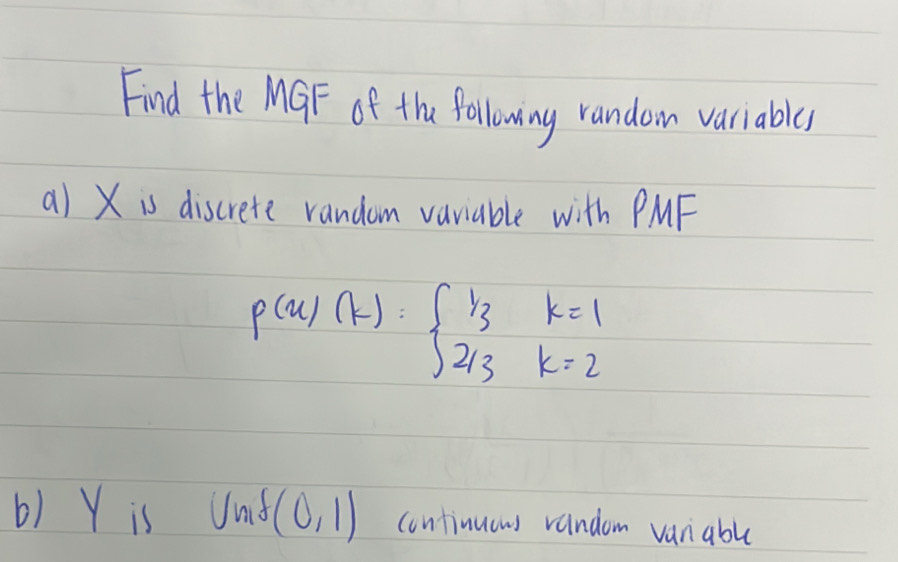 Find the MGF of the following random variables
a) X is discrete random variable with PMF
p(x) (k) : { 1/3 k=1
2/3 k=2
b) Y is Unif(0,1) continuous random variable